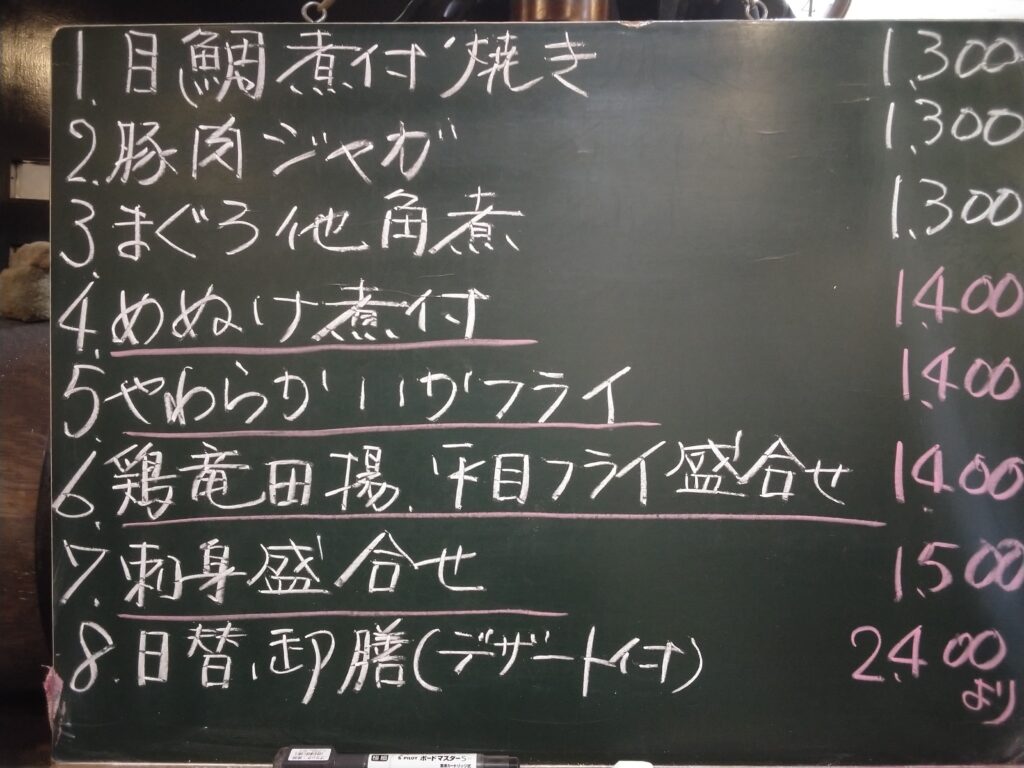 1. 目鯛煮付焼き 1,300
2. 豚肉ジャガ 1,300
3. まぐろ他角煮 1,300
4. めぬけ煮付 1,400
5. やわらかいかフライ 1,400
6. 鶏竜田揚、平目フライ盛合せ 1,400
7. 刺身盛合せ 1,500
8. 日替、卸膳(デザート付) 2,400
より
PILOT ボードマスターS